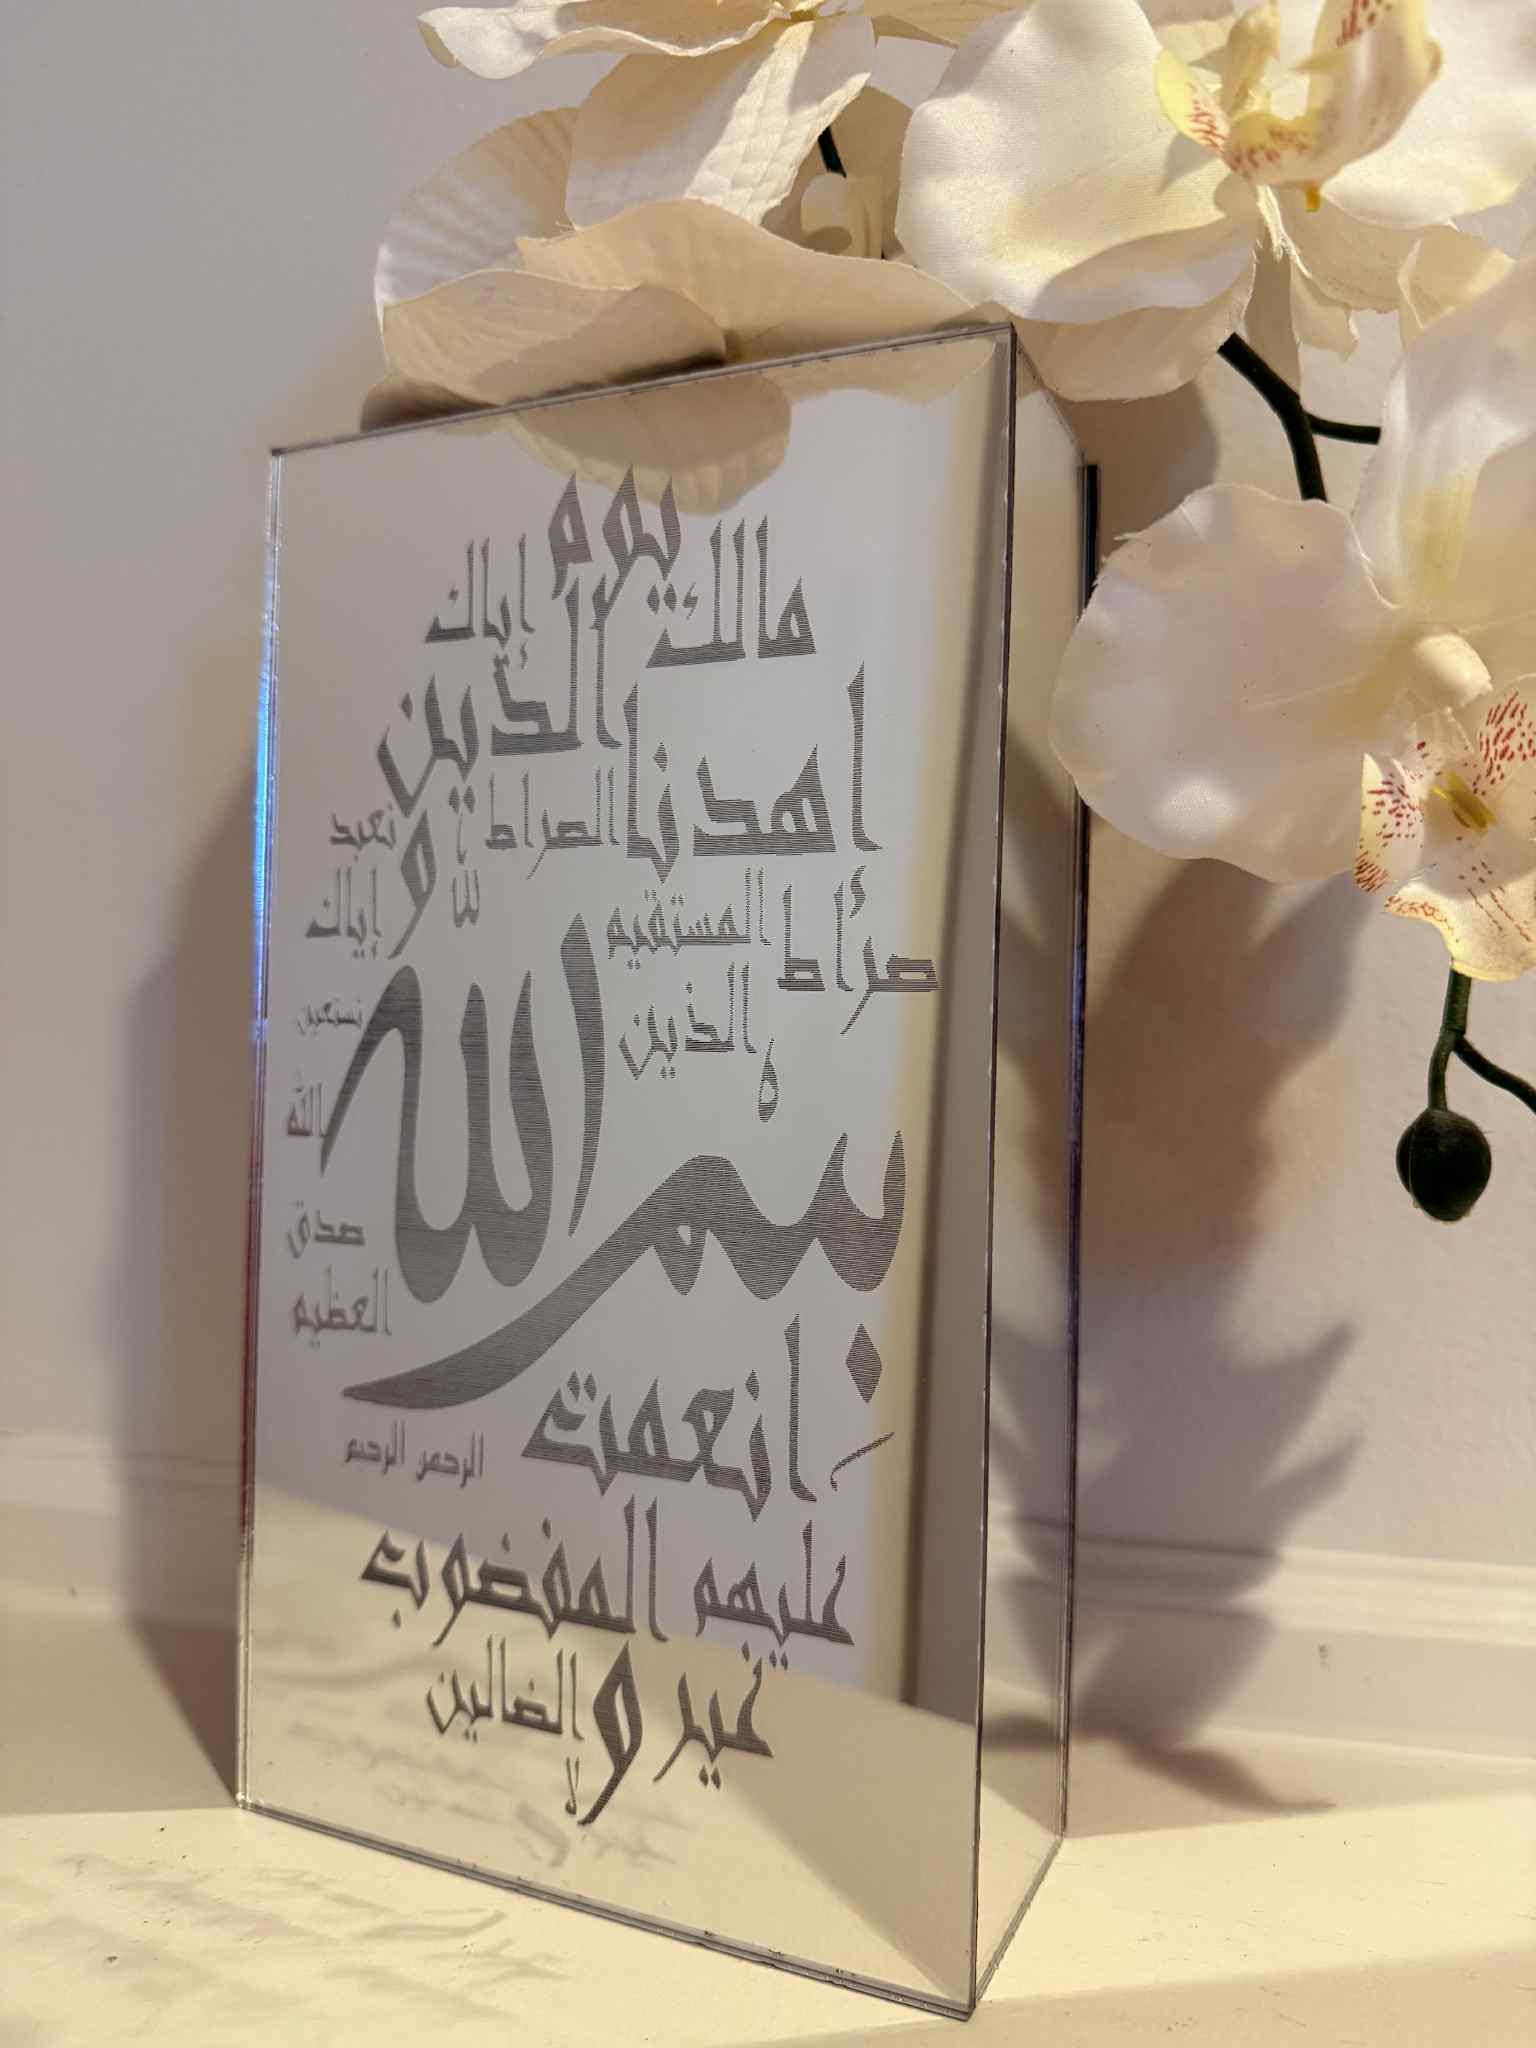 يوم
مالك
إياك
الدّين
اهدنا
الصراط
نعبد
و
إياك
المستقيم
صراط
الذين
نستعين
بسم الله
الله
صدق
العظيم
انعمت
الرحمن الرحيم
عليهم المغضوب
غير و الضالين
لا